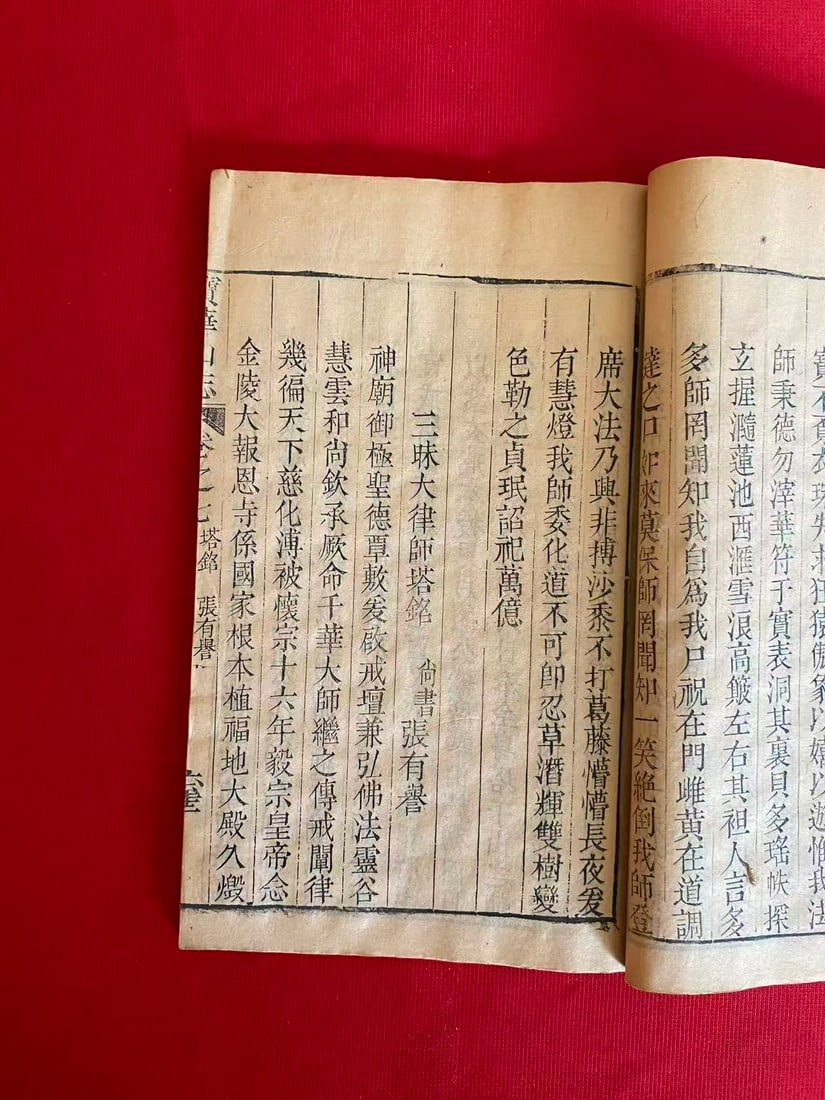 寶不賣衣珠失救狂猿傲象以嬉以遊惟我法
師秉德勿滓華符于實表洞其裏貝多瑤帙探
玄握瀡蓮池西滙雪浪高簸左右其袒人言多
多師罔聞知我自爲我尸祝在門雌黃在道調
達之口如來莫保師罔聞知一笑絶倒我師登
席大法乃興非搏沙黍不打葛藤懵懵長夜爰
有慧燈我師委化道不可卽忍草潛輝雙樹變
色勒之貞珉詔祀萬億
三昧大律師塔銘
尙書張有譽
神廟御極聖德覃敷爰啟戒壇兼弘佛法靈谷
慧雲和尚欽承厥命千華大師繼之傳戒闡律
幾徧天下慈化溥被懷宗十六年毅宗皇帝念
金陵大報恩寺係國家根本植福地大殿久燬
寶華山志
卷之七
塔銘 張有譽